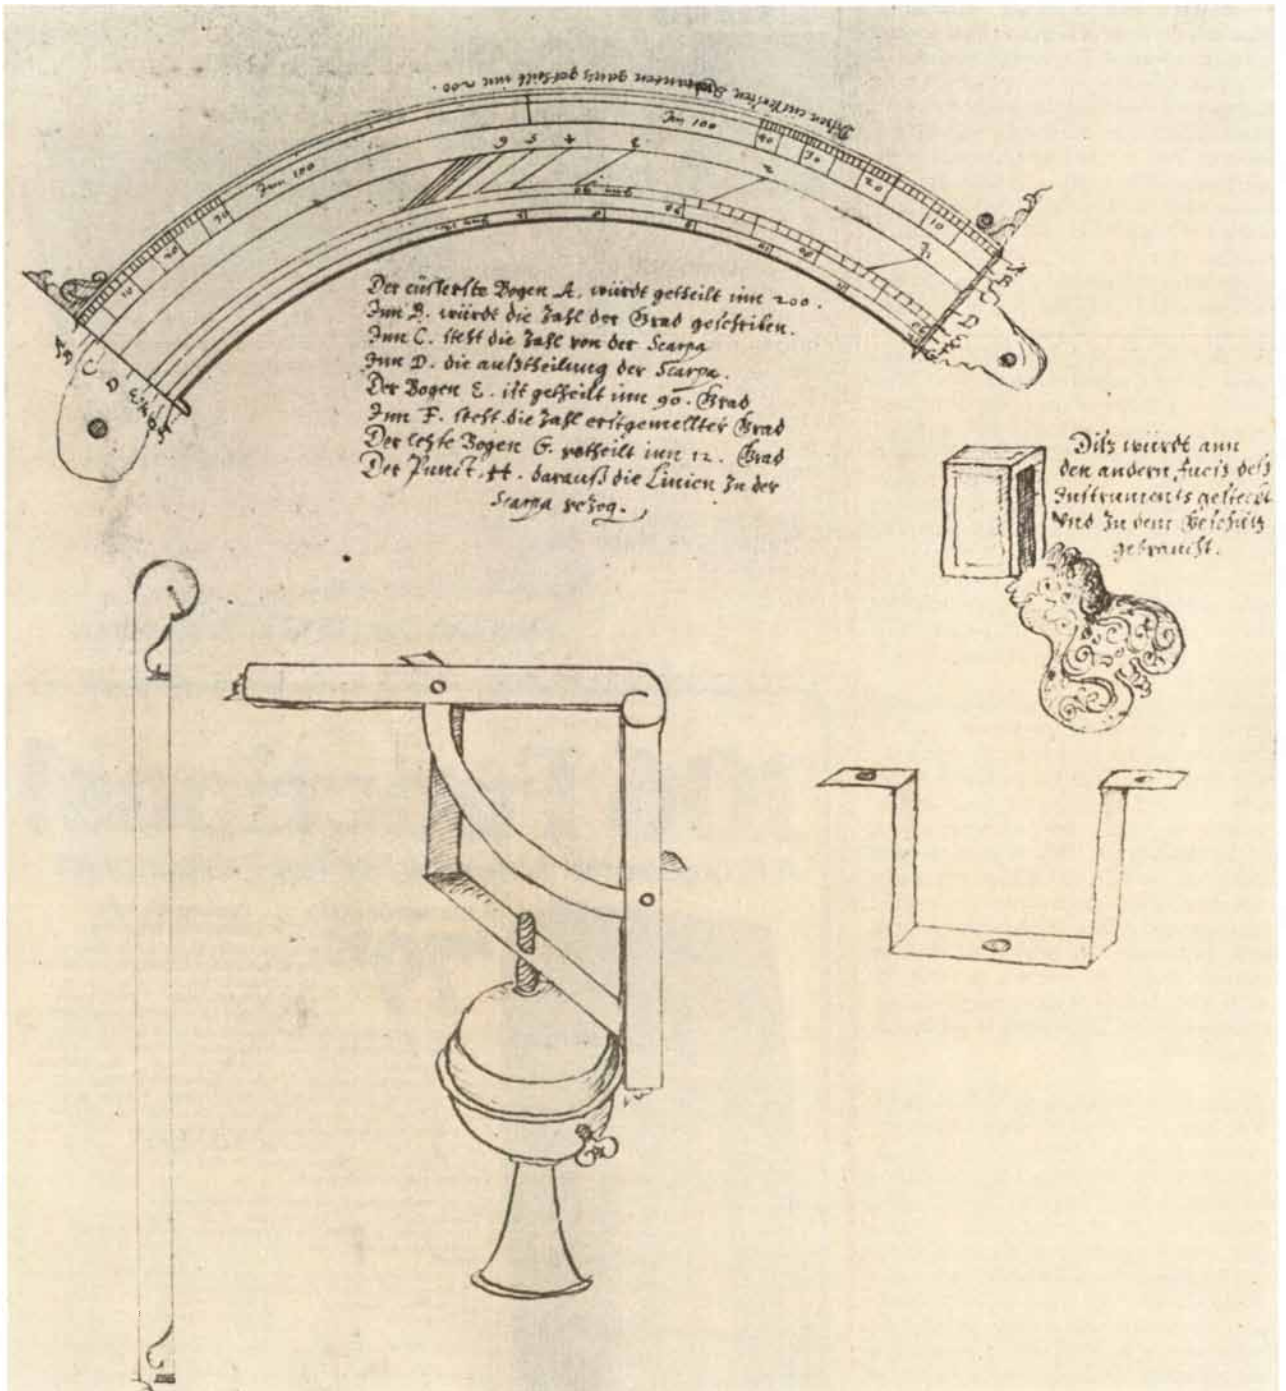 Disen eussersten Quadranten gantz getheilt inn 200.
Inn 100
Inn 100
10
20
30
30
20
10
6 5 4 3 2 1
A
B
C
D
E
F
G
H
D
inn 90
inn 12
Der eüsserste Bogen A. würdt getheilt inn 200.
Inn B. würdt die Zahl der Grad geschriben.
Inn C. steht die Zahl von der Scarpa
Inn D. die außtheilung der Scarpa.
Der Bogen E. ist getheilt inn 90. Grad
Inn F. steht die Zahl erstgemellter Grad
Der letste Bogen G. getheilt inn 12. Grad
Der Punct. H. darauß die Linien zu der
Scarpa gezog.
Diß würdt ann
den andern fueß deß
Instruments gesteckt
und zu dem Geschütz
gebraucht.